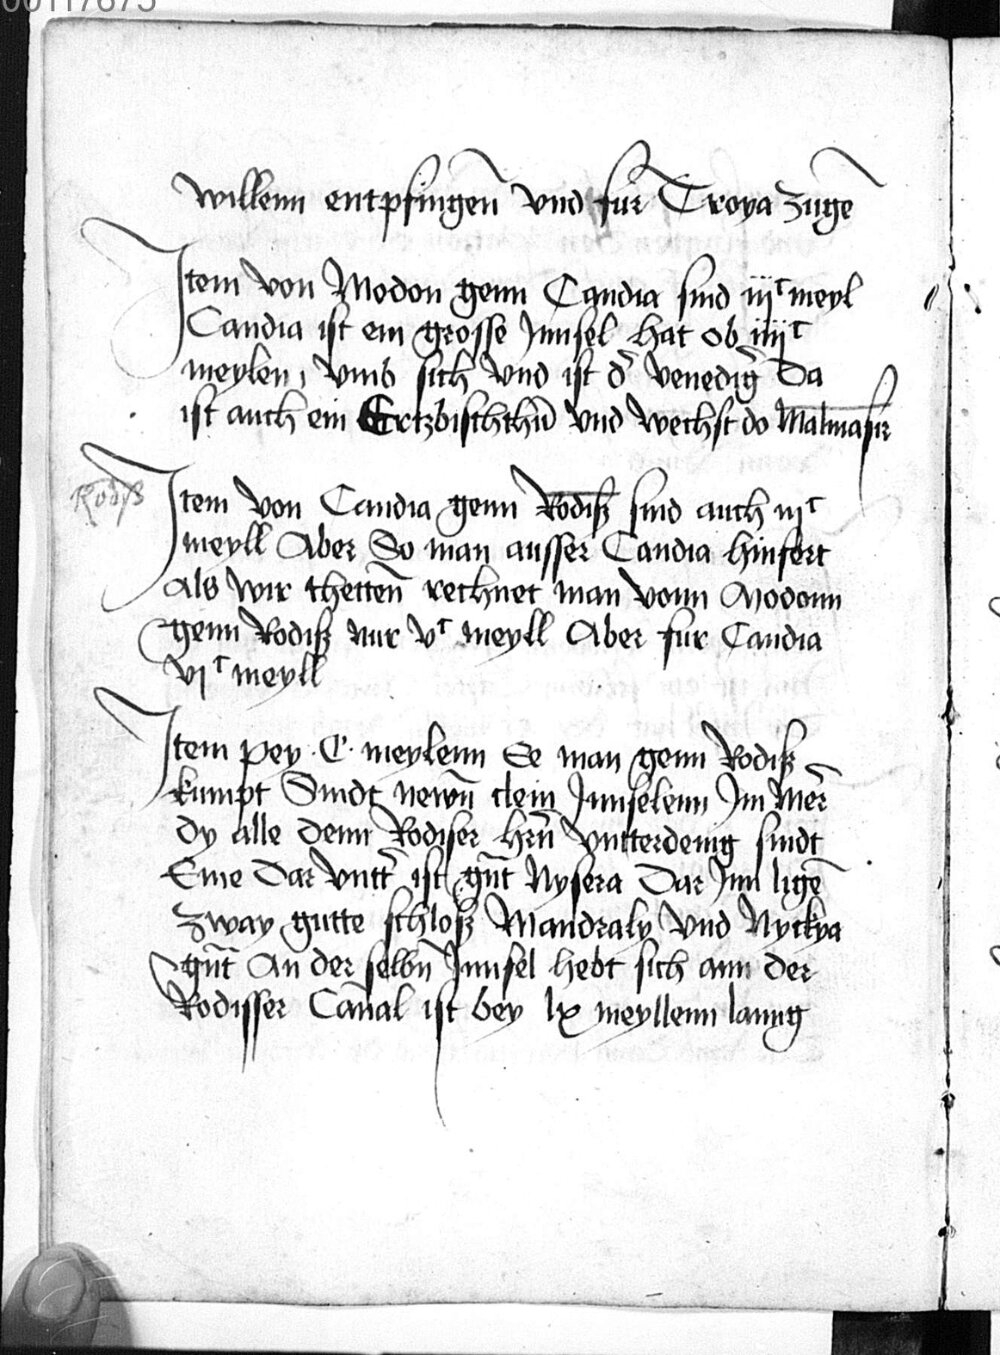 00117675
willenn entpfingen̄ vnd fur Troya zuge̅
Item von Modon genn Candia sind iijc meyl
Candia ist ein grosse Jnnsel hat ob iiijc
meylen, vmb sich vnd ist d' venedig' Da
ist auch ein Ertzbischthu̅ vnd wechst do Malmasir
Rodiß
Item von Candia genn Rodiß sind auch iijc
meyll Aber So man ausser Candia hinfert
Als wir thetten̄ rechnet man vonn Modonn
genn Rodiß nur vc meyll Aber fur Candia
vjc meyll
Item pey · C · meylenn Ee man genn Rodiß
kumpt Sindt newn̄ clein Jnnselenn Jm Mer
dy alle denn Rodiser hrn̄ vntterdenig sindt
Eine Dar vntt' ist gn̄t Nysera Dar Jnn lige̅
zway gutte schloß Mandraly vnd Nyckya
gn̄t An der selbn̄ Jnnsel hebt sich ann der
Rodisser Canal ist bey lx meyllenn lanng